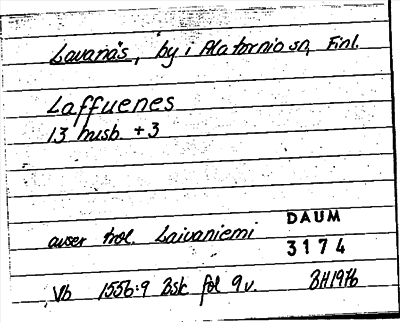 Lavanäs, by i Alatornio sn, Finl.
Laffuenes
13 husb. +3
avser trol. Laivaniemi
DAUM
3174
Vb 1556:9 Bsk fol 9v. BH1976